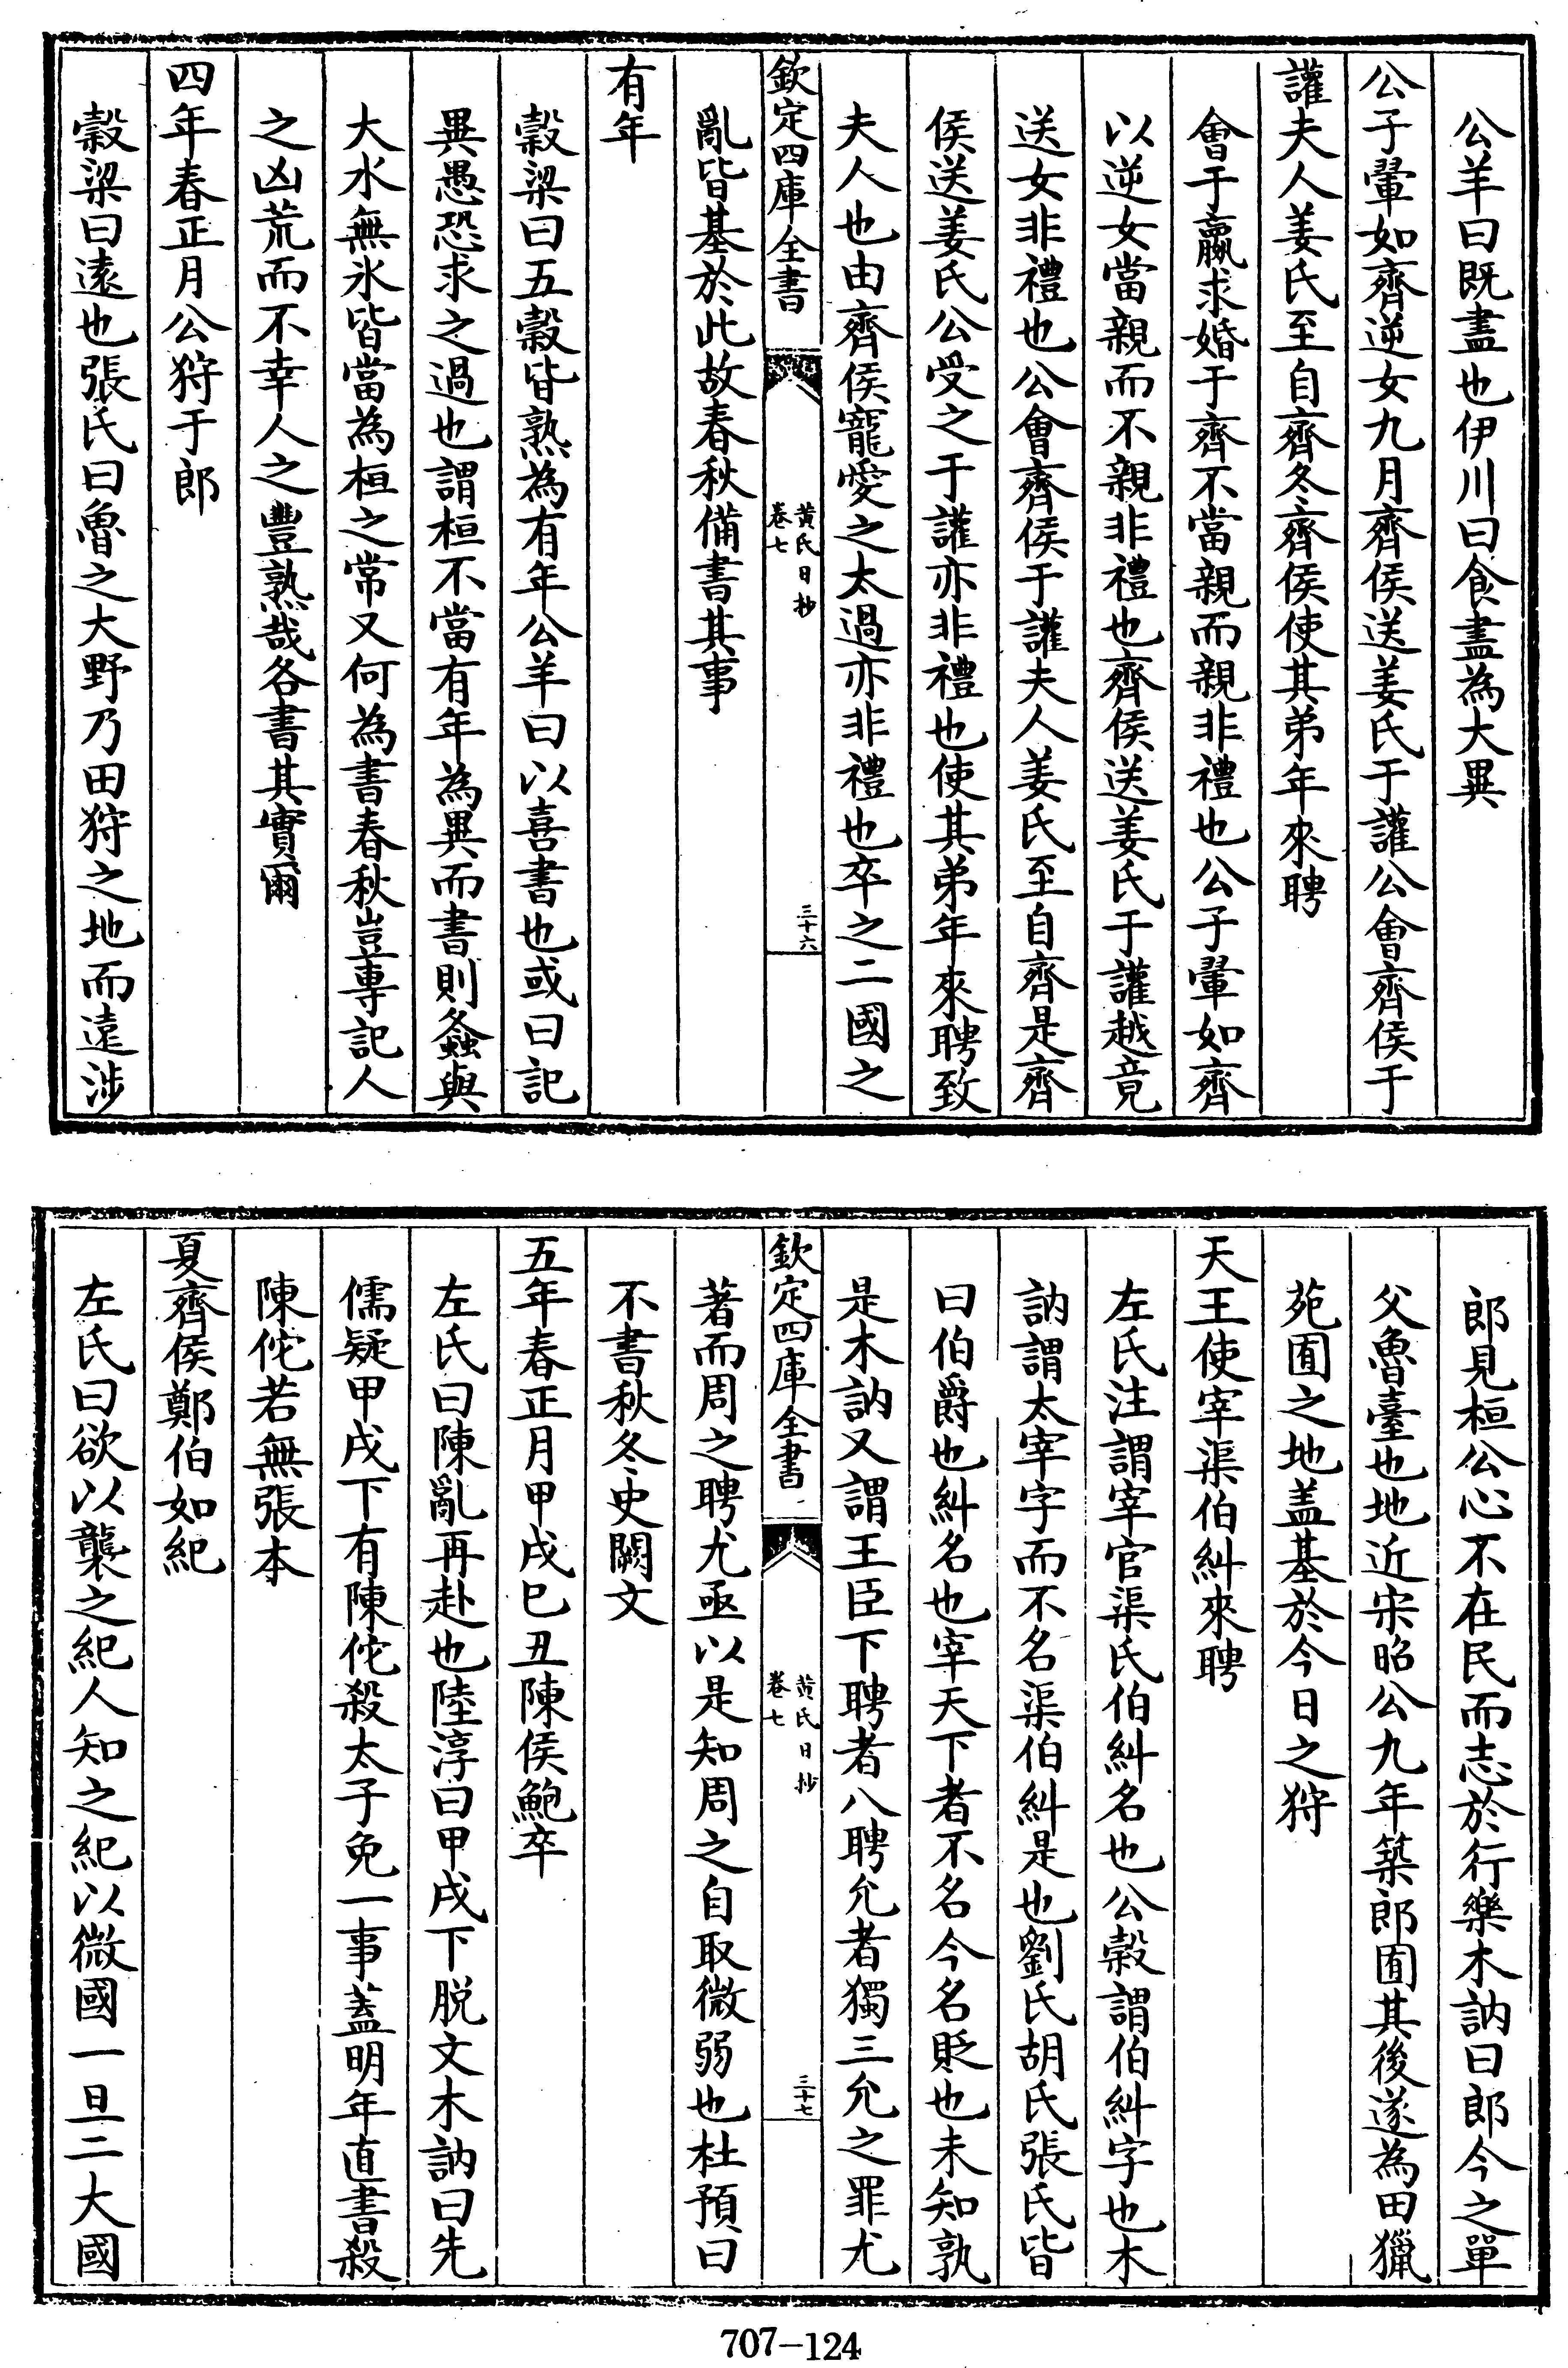 公羊曰既盡也伊川曰食盡為大異
公子翬如齊逆女九月齊侯送姜氏于讙公會齊侯于
讙夫人姜氏至自齊冬齊侯使其弟年來聘
會于嬴求婚于齊不當親而親非禮也公子翬如齊
以逆女當親而不親非禮也齊侯送姜氏于讙越竟
送女非禮也公會齊侯于讙夫人姜氏至自齊是齊
侯送姜氏公受之于讙亦非禮也使其弟年來聘致
夫人也由齊侯寵愛之太過亦非禮也卒之二國之
欽定四庫全書
黃氏日抄
卷七
三十六
亂皆基於此故春秋備書其事
有年
穀梁曰五穀皆熟為有年公羊曰以喜書也或曰記
異愚恐求之過也謂桓不當有年為異而書則螽與
大水無氷皆當為桓之常又何為書春秋豈專記人
之凶荒而不幸人之豐熟哉各書其實爾
四年春正月公狩于郎
穀梁曰遠也張氏曰魯之大野乃田狩之地而遠涉
郎見桓公心不在民而志於行樂木訥曰郎今之單
父魯臺也地近宋昭公九年築郎囿其後遂為田獵
苑囿之地盖基於今日之狩
天王使宰渠伯糾來聘
左氏注謂宰官渠氏伯糾名也公穀謂伯糾字也木
訥謂太宰字而不名渠伯糾是也劉氏胡氏張氏皆
曰伯爵也糾名也宰天下者不名今名貶也未知孰
是木訥又謂王臣下聘者八聘允者獨三允之罪尤
欽定四庫全書
黃氏日抄
卷七
三十七
著而周之聘尤亟以是知周之自取微弱也杜預曰
不書秋冬史闕文
五年春正月甲戌巳丑陳侯鮑卒
左氏曰陳亂再赴也陸淳曰甲戌下脱文木訥曰先
儒疑甲戌下有陳佗殺太子免一事蓋明年直書殺
陳佗若無張本
夏齊侯鄭伯如紀
左氏曰欲以襲之紀人知之紀以微國一旦二大國
707-124